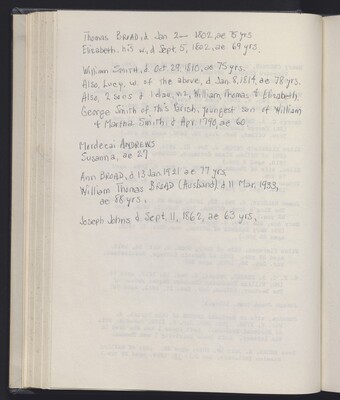 Thomas BROAD, d Jan 2— 1802, ae 75 yrs
Elizabeth, his w, d Sept. 5, 1802, ae 69 yrs.
William Smith, d. Oct. 29, 1810, ae 75 yrs.
Also Lucy, w of the above, d Jan. 8, 1814, ae 78 yrs.
Also, 2 sons & 1 dau, viz, William, Thomas & Elizabeth.
George Smith of this Parish, youngest son of William
& Martha Smith, d Apr. 1790, ae 60.
Mordecai ANDREWS
Susanna, ae 27
Ann BROAD, d 13 Jan. 1921 ae 77 yrs
William Thomas BROAD (Husband), d 11 Mar. 1933,
ae 88 yrs.
Joseph Johns, d Sept. 11, 1862, ae 63 yrs.